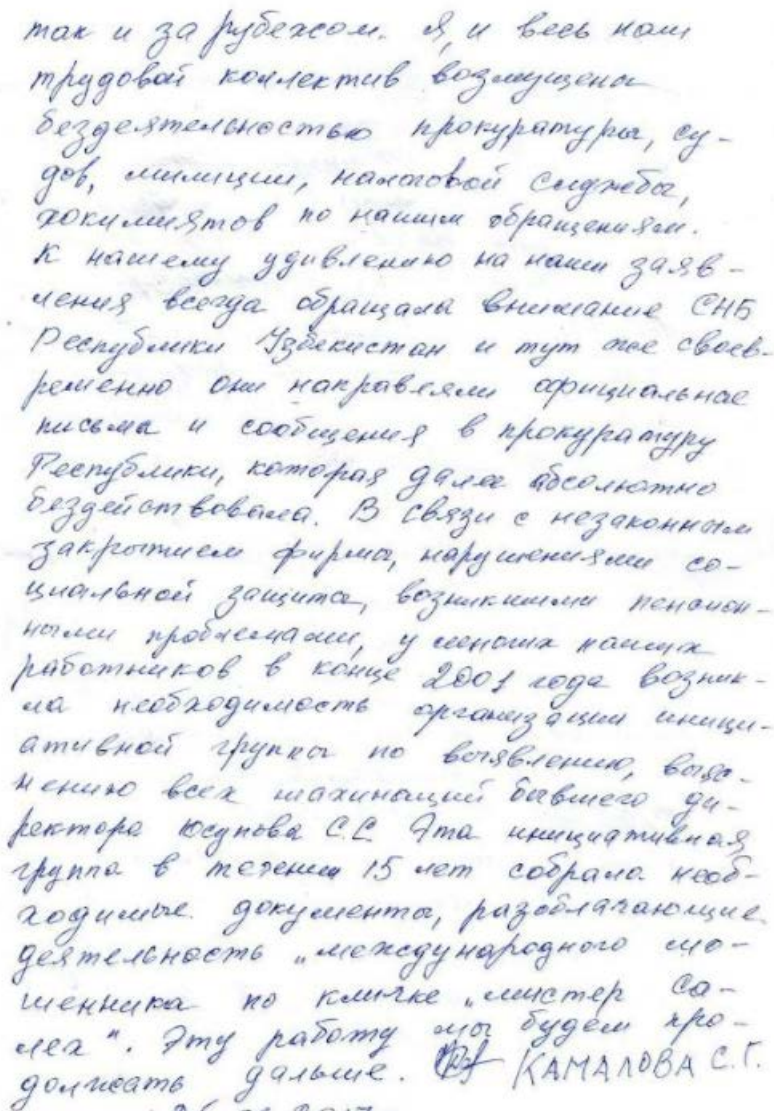 так и за рубежом. Я, и весь наш
трудовой коллектив возмущены
бездеятельностью прокуратуры, су-
дов, милиции, налоговой службы,
хокимиятов по нашим обращениям.
К нашему удивлению на наши заяв-
ления всегда обращала внимание СНБ
Республики Узбекистан и тут же своев-
ременно они направляли официальные
письма и сообщения в прокуратуру
Республики, которая далее абсолютно
бездействовала. В связи с незаконным
закрытием фирмы, нарушениями со-
циальной защиты, возникшими пенсион-
ными проблемами, у многих наших
работников в конце 2001 года возник-
ла необходимость организации иници-
ативной группы по выявлению, выяс-
нению всех махинаций бывшего ди-
ректора Юсупова С.С Эта инициативная
группа в течении 15 лет собрала необ-
ходимые документы, разоблачающие
деятельность „международного мо-
шенника по кличке „мистер Са-
лех". Эту работу мы будем про-
должать дальше. КАМАЛОВА С.Г.